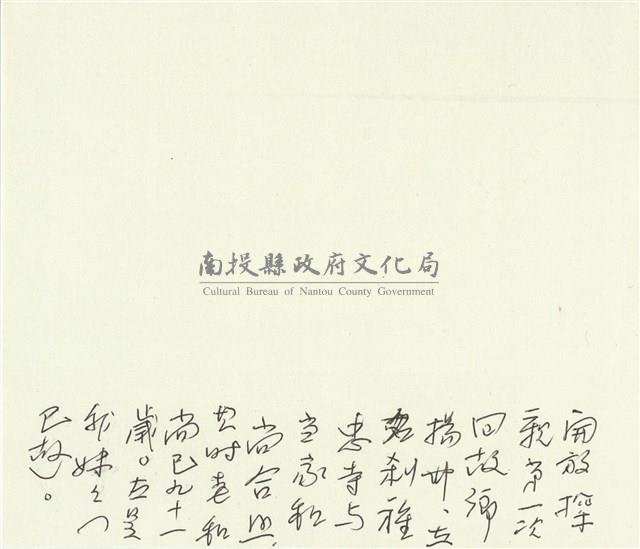 南投縣政府文化局
Cultural Bureau of Nantou County Government
開放探
親第一次
回故鄉
揚州、在
名刹旌
忠寺与
当家和
尚合照
其时老和
尚已九十一
歲。左是
我妹々(
已故)。